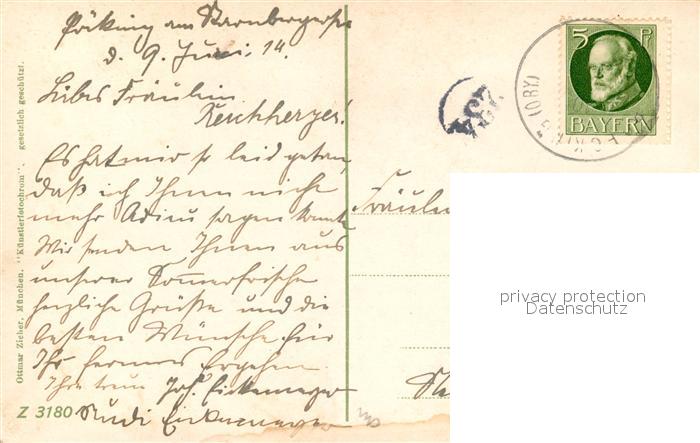 Pöcking am Starnbergersee
d. 9. Juni. 14.
Liebes Fräulein
Es hat mir so leid getan,
daß ich Ihnen nicht
mehr Adieu sagen konnte
Wir senden Ihnen aus
unserer Sommerfrische
herzliche Grüße und die
besten Wünsche für
Ihr ferneres Ergehen.
Ihre treue Joh. Eickemeyer
Rudi Eickemeyer
Z 3180
Ottmar Zieher, München. "Künstlerfotochrom". gesetzlich geschützt.
5 Pf
BAYERN
Fräulein
privacy protection
Datenschutz